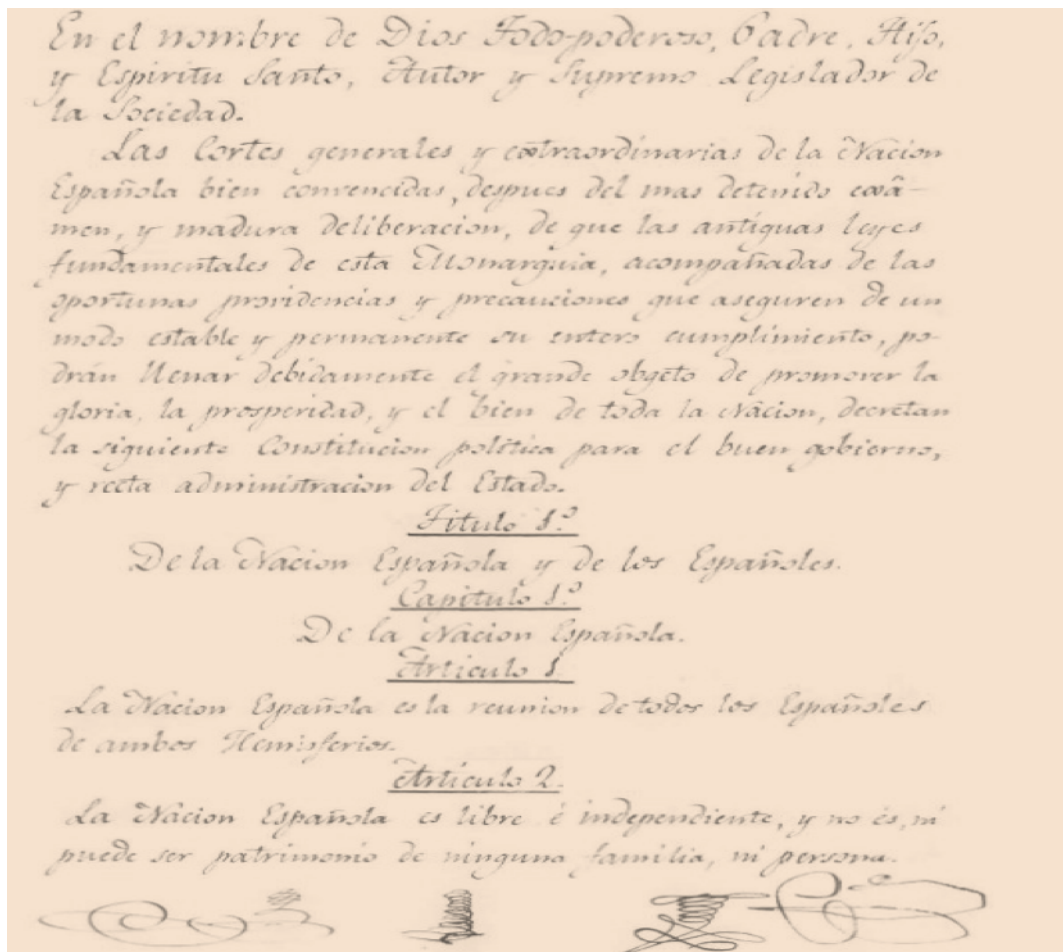 En el nombre de Dios Todo-poderoso, Padre, Hijo,
y Espiritu Santo, Autor y Supremo Legislador de
la Sociedad.
Las Cortes generales y extraordinarias de la Nacion
Española bien convencidas, despues del mas detenido exâ-
men, y madura deliberacion, de que las antiguas leyes
fundamentales de esta Monarquia, acompañadas de las
oportunas providencias y precauciones que aseguren de un
modo estable y permanente su entero cumplimiento, po-
drán llenar debidamente el grande obgeto de promover la
gloria, la prosperidad, y el bien de toda la Nacion, decretan
la siguiente Constitucion política para el buen gobierno,
y recta administracion del Estado.
Titulo 1.º
De la Nacion Española y de los Españoles.
Capitulo 1.º
De la Nacion Española.
Articulo 1
La Nacion Española es la reunion de todos los Españoles
de ambos Hemisferios.
Artículo 2.
La Nacion Española es libre é independiente, y no és, ni
puede ser patrimonio de ninguna familia, ni persona.